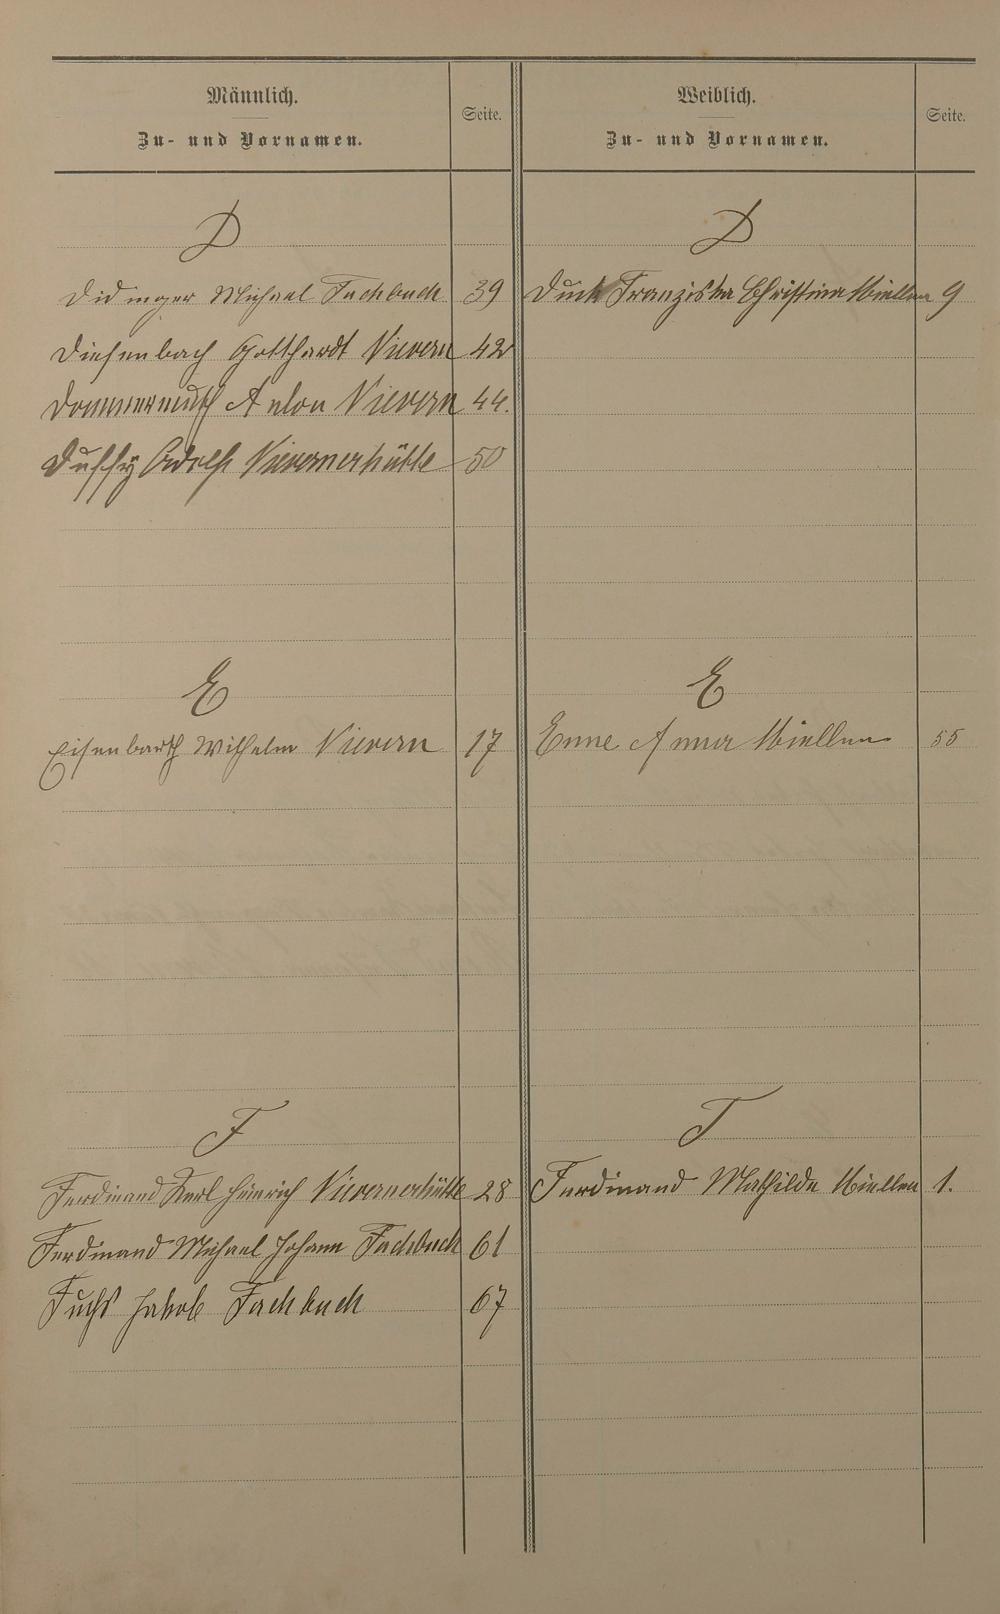 Männlich.
Zu- und Vornamen.
Seite.
Weiblich.
Zu- und Vornamen.
Seite.
D
D
Didinger Michael Fachbach 39
Duck Franziska Christina Miellen 9
Diefenbach Gotthardt Nievern 42
Dommermuth Anton Nievern 44.
Duffy Adolf Nievernerhütte 50
E
E
Eisenbarth Wilhelm Nievern 17
Enne Anna Miellen 55
F
F
Ferdinand Karl Heinrich Nievernerhütte 28
Ferdinand Mathilde Miellen 1.
Ferdinand Michael Johann Fachbach 61
Fuchs Jakob Fachbach 67